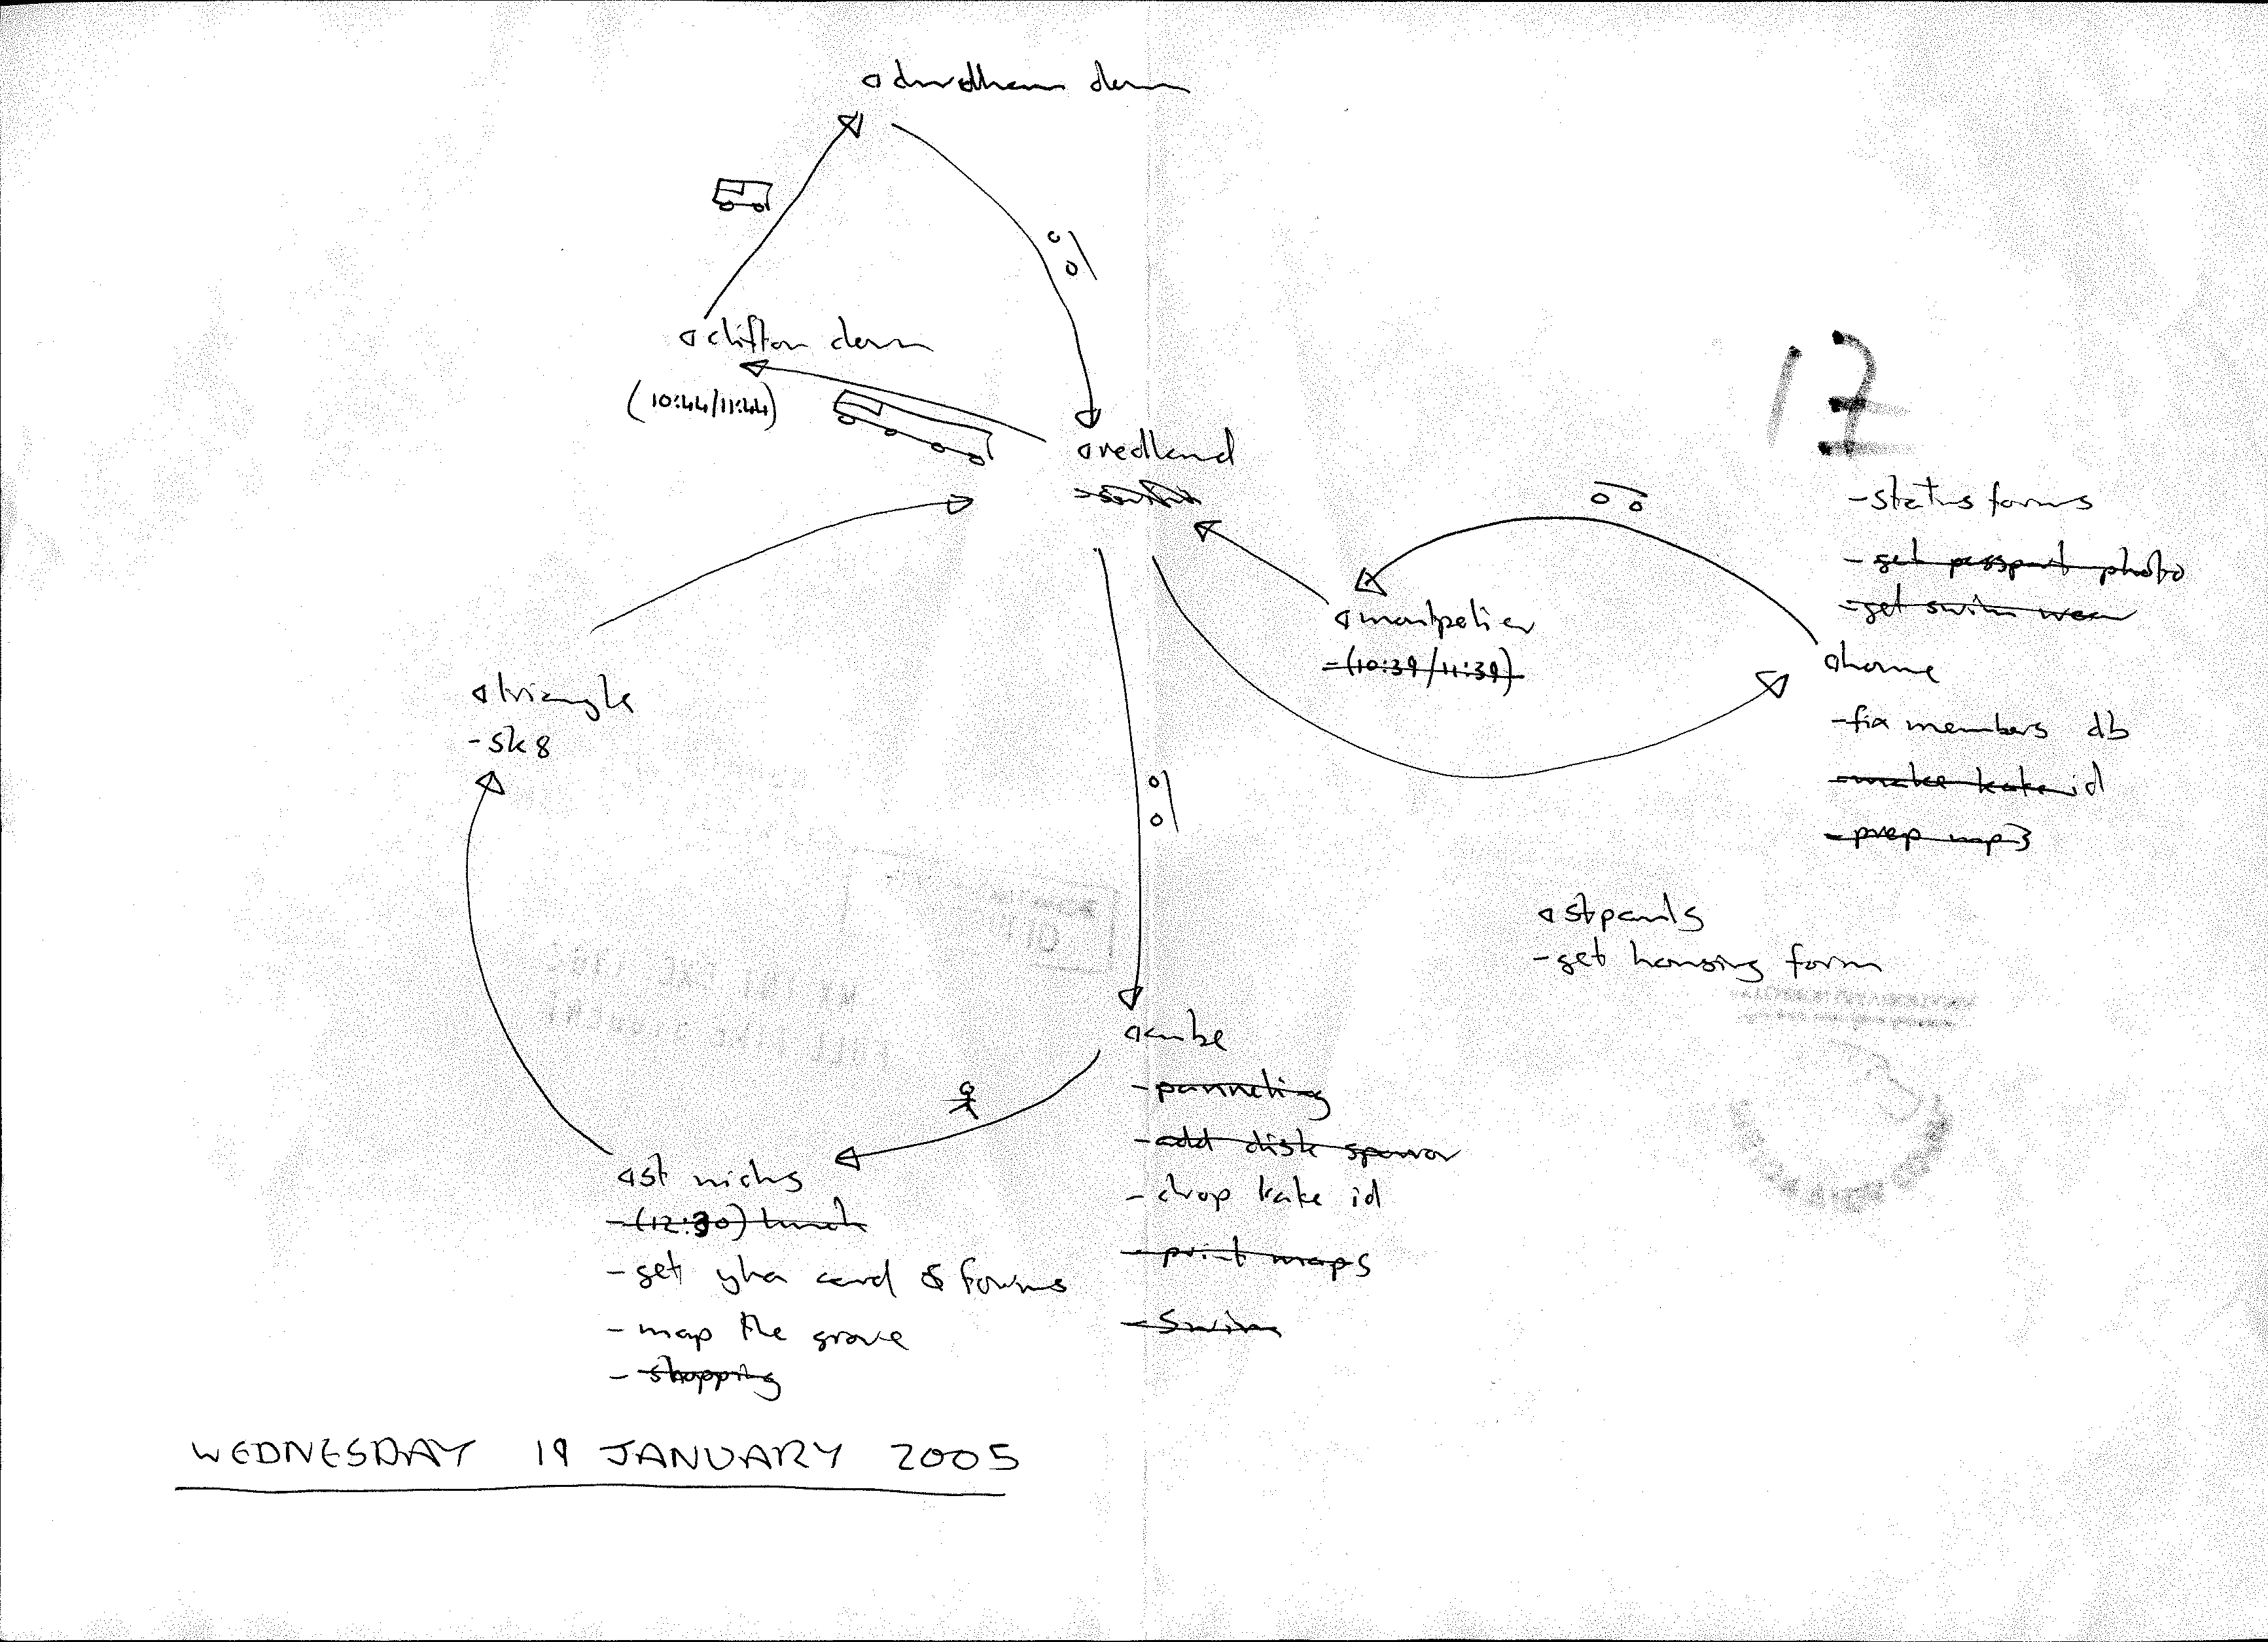 durdham down
clifton down
(10:44/11:44)
redland
17
- status forms
- get passport photo
- get swim wear
montpelier
- (10:39/11:39)
home
- fix members db
- make kake id
- prep mp3
triangle
- sk8
st pauls
- get housing form
cube
- add disk
- drop kake id
- print maps
- swim
st nichs
- (12:30) lunch
- get yha card & forms
- map the grove
- shopping
WEDNESDAY 19 JANUARY 2005